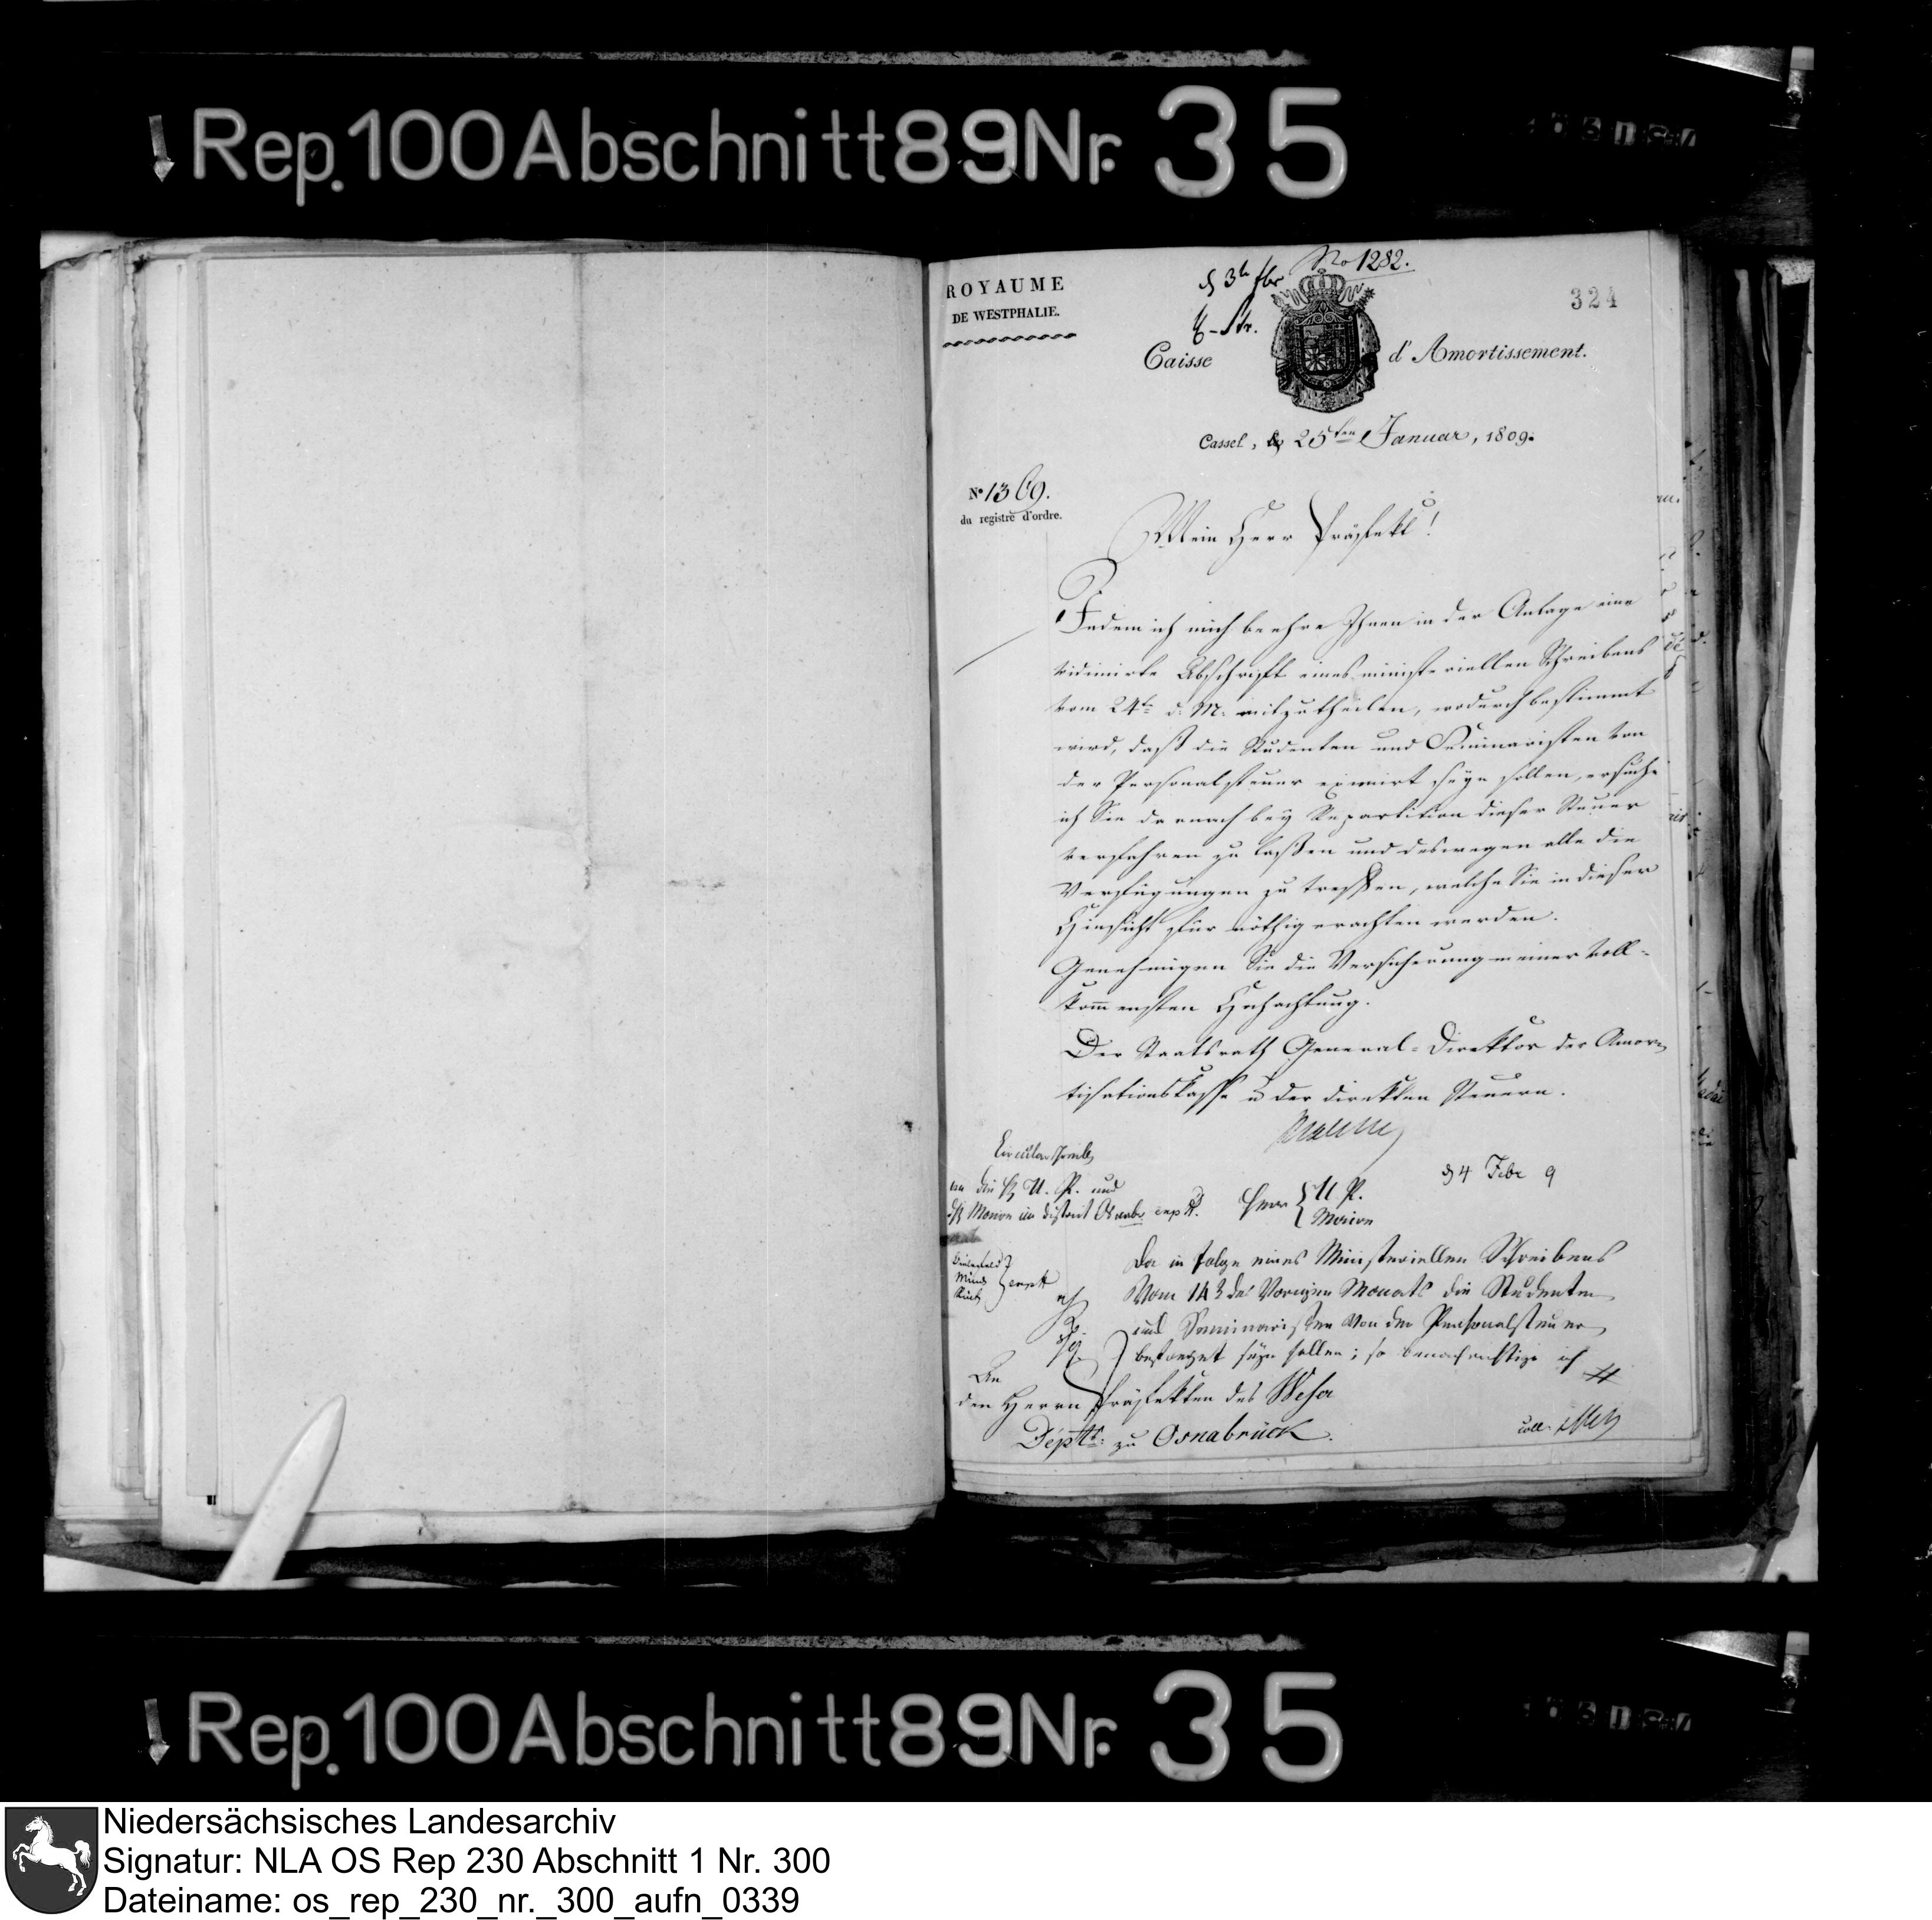 Rep. 100 Abschnitt 89 Nr. 35
ROYAUME
DE WESTPHALIE.
No 1282.
324
Caisse d'Amortissement.
Cassel, den 25ten Januar, 1809.
No 1369.
du registre d'ordre.
Mein Herr Präfekt!
Indem ich mich beehre Ihnen in der Anlage eine
vidimirte Abschrift eines ministeriellen Schreibens
vom 24ten d. M. mitzutheilen, wodurch bestimmt
wird, daß die Studenten und Seminaristen von
der Personalsteuer eximirt seyn sollen, ersuche
ich Sie darnach bey Repartition dieser Steuer
verfahren zu laßen und deswegen alle die
Verfügungen zu treffen, welche Sie in dieser
Hinsicht für nöthig erachten werden.
Genehmigen Sie die Versicherung meiner voll-
kommensten Hochachtung.
Der Staatsrath General-Direktor der Amor-
tisationskasse u der direkten Steuern.
Malchus
Circulare
an die H U. P. und
Maires im District Osnabr.
Herr U. P.
Maire
d 4 Febr 9
Da in folge eines Ministeriellen Schreibens
vom des vorigen Monats die Studenten
und Seminaristen von der Personalsteuer
befreyet seyn sollen; so benachrichtige ich
An
den Herrn Präfekten des Weser
Depts: zu Osnabrück.
Rep. 100 Abschnitt 89 Nr. 35
Niedersächsisches Landesarchiv
Signatur: NLA OS Rep 230 Abschnitt 1 Nr. 300
Dateiname: os_rep_230_nr._300_aufn_0339